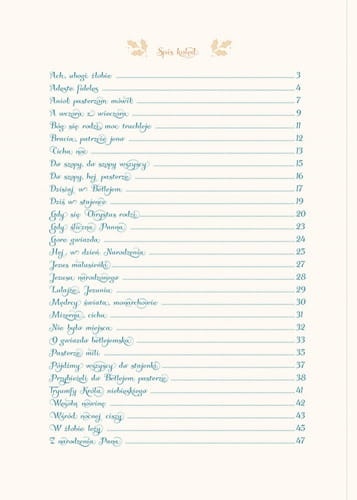 Spis kolęd
Ach, ubogi żłobie 3
Adeste fideles 4
Anioł pasterzom mówił 7
A wczora z wieczora 9
Bóg się rodzi, moc truchleje 11
Bracia, patrzcie jeno 12
Cicha noc 13
Do szopy, do szopy wszyscy 15
Do szopy, hej pasterze 16
Dzisiaj w Betlejem 17
Dziś w stajence 19
Gdy się Chrystus rodzi 20
Gdy śliczna Panna 23
Gore gwiazda 24
Hej, w dzień Narodzenia 25
Jezus malusieńki 27
Jezusa narodzonego 28
Lulajże, Jezuniu 29
Mędrcy świata, monarchowie 30
Mizerna, cicha 31
Nie było miejsca 32
O gwiazdo betlejemska 33
Pasterze mili 35
Pójdźmy wszyscy do stajenki 37
Przybieżeli do Betlejem pasterze 38
Tryumfy Króla niebieskiego 41
Wesołą nowinę 42
Wśród nocnej ciszy 43
W żłobie leży 45
Z narodzenia Pana 47